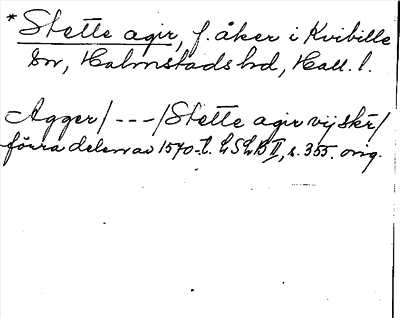 *Stette agir, f. åker i Kvibille
sn, Halmstads hd, Hall. l.
Agger/---/Stette agir vij skr/
förra delen av 1570-t. LSLB II, s. 355. orig.